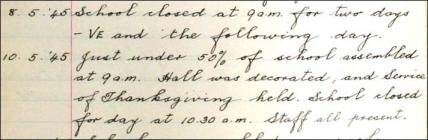 8. 5. '45 School closed at 9 a.m. for two days
- VE and the following day.
10. 5. '45 Just under 50% of school assembled
at 9 a.m. Hall was decorated, and Service
of Thanksgiving held. School closed
for day at 10.30 a.m. Staff all present.